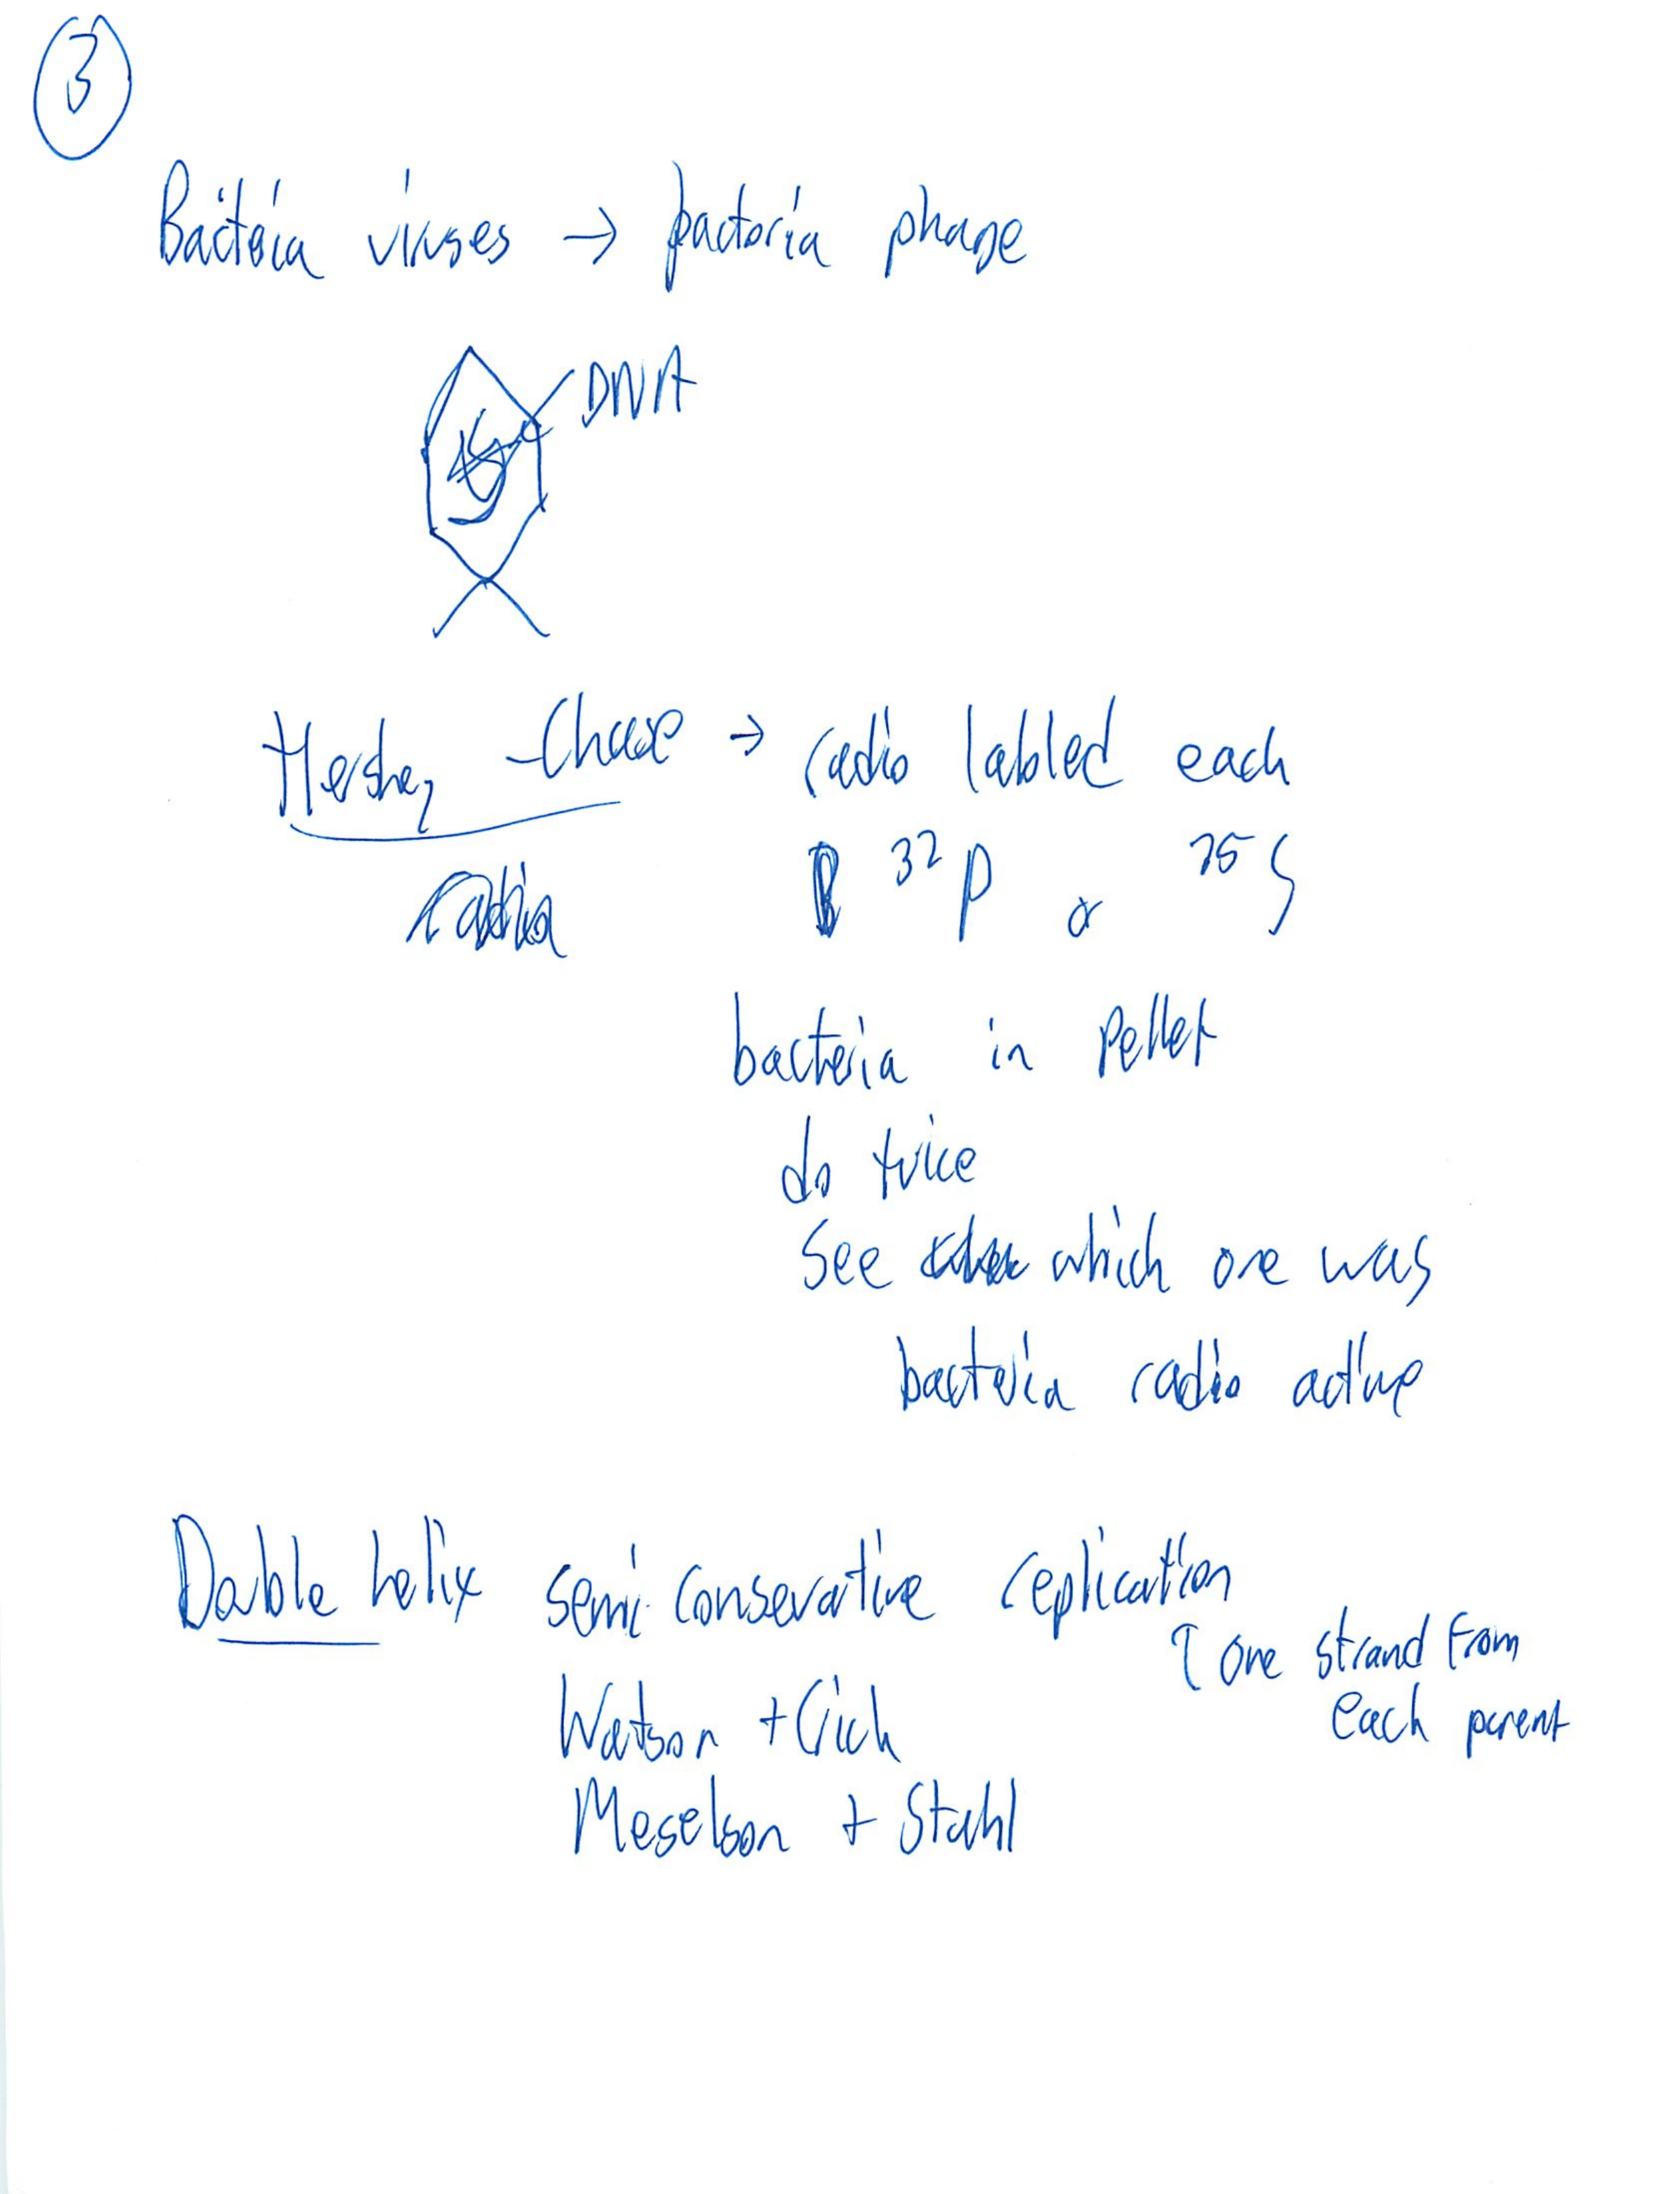 3
Bacteria viruses → bacteria phage
DNA
Hershey - Chase → radio labled each
radio
32 P or 35 S
bacteria in Pellet
do twice
see which one was
bacteria radio active
Double helix semi conservative replication
↑ one strand from
each parent
Watson + Crick
Meselson + Stahl